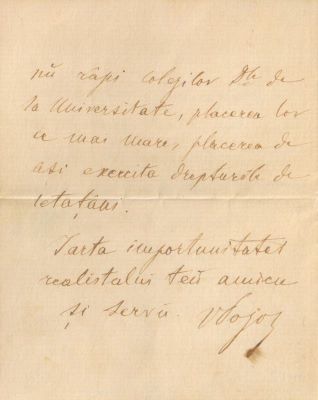 nŭ răpi colegilor Dle de
la Universitate, placerea lor
ce mai mare, placerea de
aşi exercita drepturile de
cetaţăni.
Iarta importunitatei
realistului teŭ amicu
şi servŭ. V Pogor